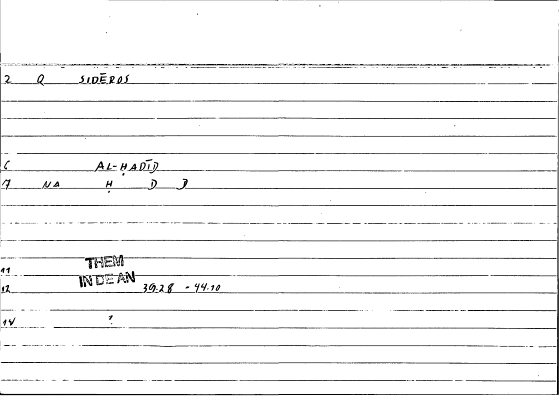 2 Q SIDĒROS
6 AL-ḤADĪD
7 NA Ḥ D D
11 THEM
IN DE AN
12 39.28 - 44.10
14 ?